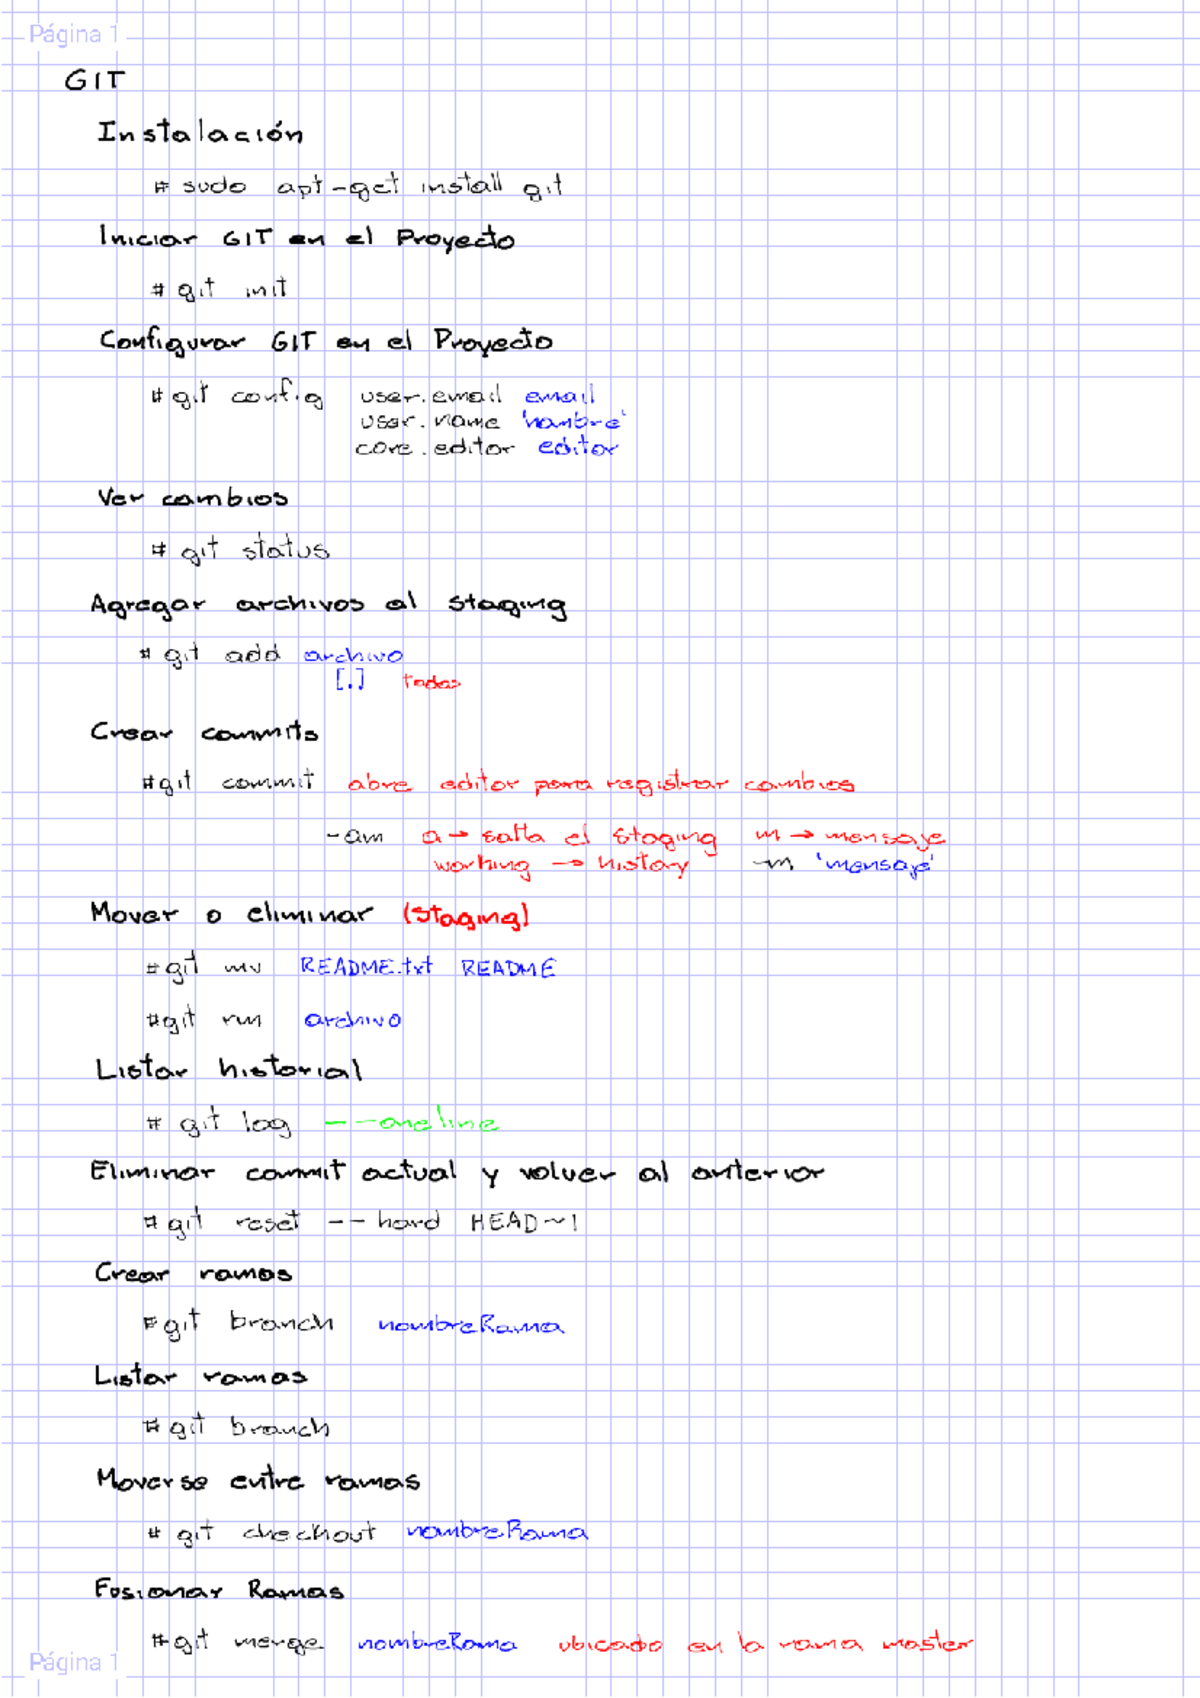 Página 1
GIT
Instalación
# sudo apt-get install git
Iniciar GIT en el Proyecto
# git init
Configurar GIT en el Proyecto
# git config user.email email
user.name 'nombre'
core.editor editor
Ver cambios
# git status
Agregar archivos al staging
# git add archivo
[.] todos
Crear commits
#git commit abre editor para registrar cambios
-am a→ salta el staging m → mensaje
working → history -m 'mensaje'
Mover o eliminar (staging)
#git mv README.txt README
#git rm archivo
Listar historial
# git log --oneline
Eliminar commit actual y volver al anterior
#git reset --hard HEAD~1
Crear ramas
#git branch nombreRama
Listar ramas
# git branch
Moverse entre ramas
# git checkout nombreRama
Fusionar Ramas
#git merge nombreRama ubicado en la rama master
Página 1